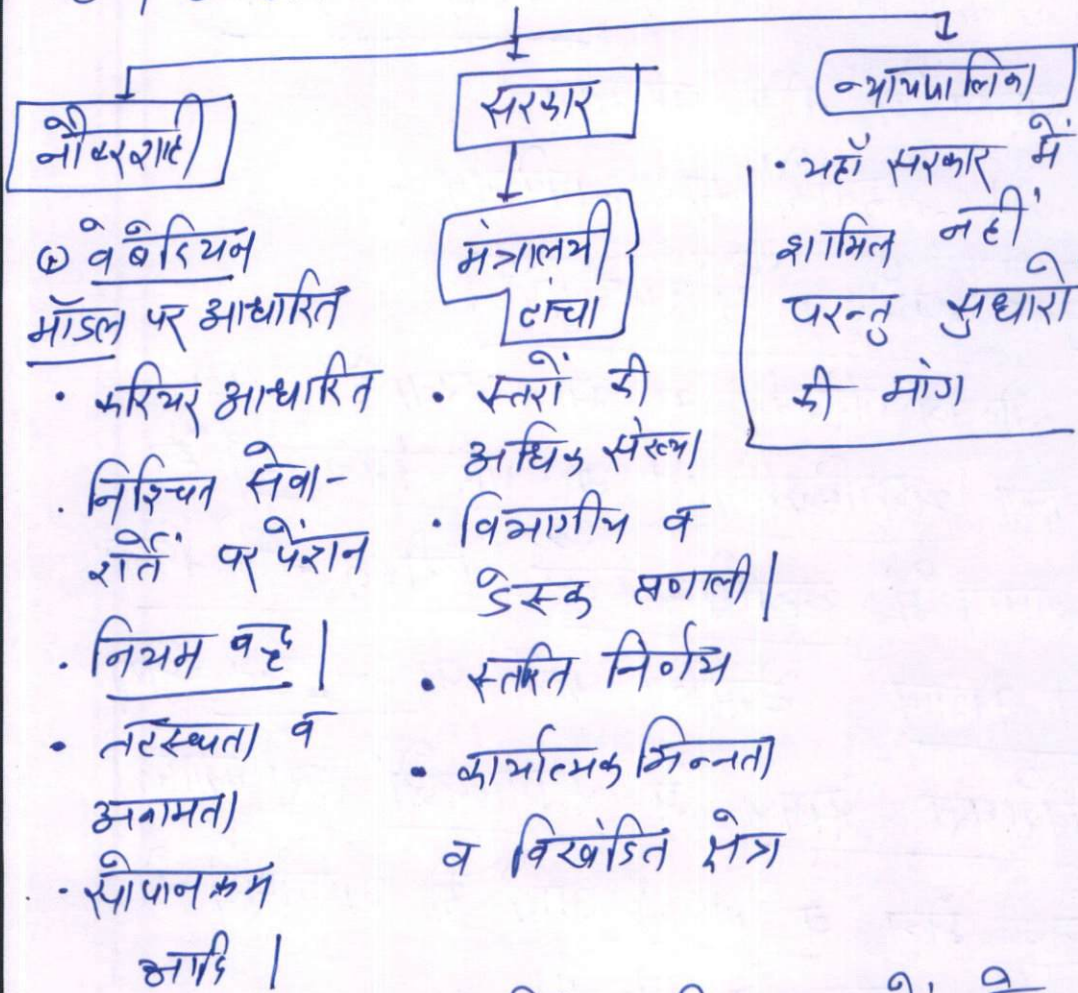 नौकरशाही
→ वेबेरियन
मॉडल पर आधारित
• करियर आधारित
• निश्चित सेवा-
शर्तें पर पेंशन
• नियम बद्ध |
• तटस्थता व
अनामता
• सोपानक्रम
आदि |
सरकार
मंत्रालयी
ढांचा
• स्तरों की
अधिक संख्या
• विभागीय व
डेस्क प्रणाली |
• स्तरित निर्णय
• कार्यात्मक भिन्नता
व विखंडित क्षेत्र
न्यायपालिका
• यहाँ सरकार में
शामिल नहीं
परन्तु सुधारों
की मांग